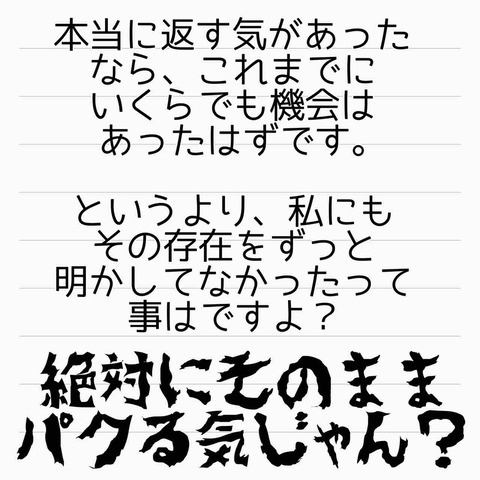 本当に返す気があった
なら、これまでに
いくらでも機会は
あったはずです。
というより、私にも
その存在をずっと
明かしてなかったって
事はですよ？
絶対にそのまま
パクる気じゃん？